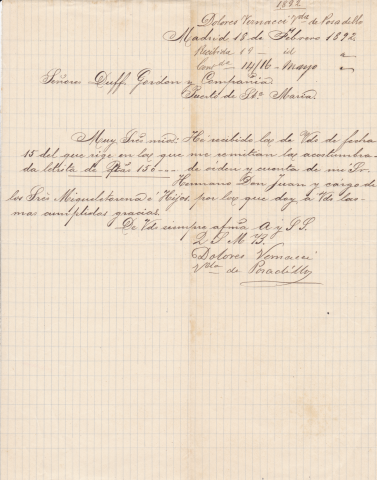 1892
Dolores Vernacci Vda de Posadillo
Madrid 18 de Febrero 1892.
Recibida 19 — id "
Conda 14/16 - Mayo "
Señores Duff Gordon y Compañia.
Puerto de Sta Maria.
Muy Sres mios: He recibido la de Vds de fecha
15 del que rige en la que me remitian la acostumbra-
da letrita de Ptas 150 --- de órden y cuenta de mi Sr.
Hermano Don Juan y cargo de
los Sres Miqueletorena é Hijos, por lo que doy á Vds las
mas cumplidas gracias.
De Vds siempre afma A y S S.
Q S M B.
Dolores Vernacci
Vda de Posadillo